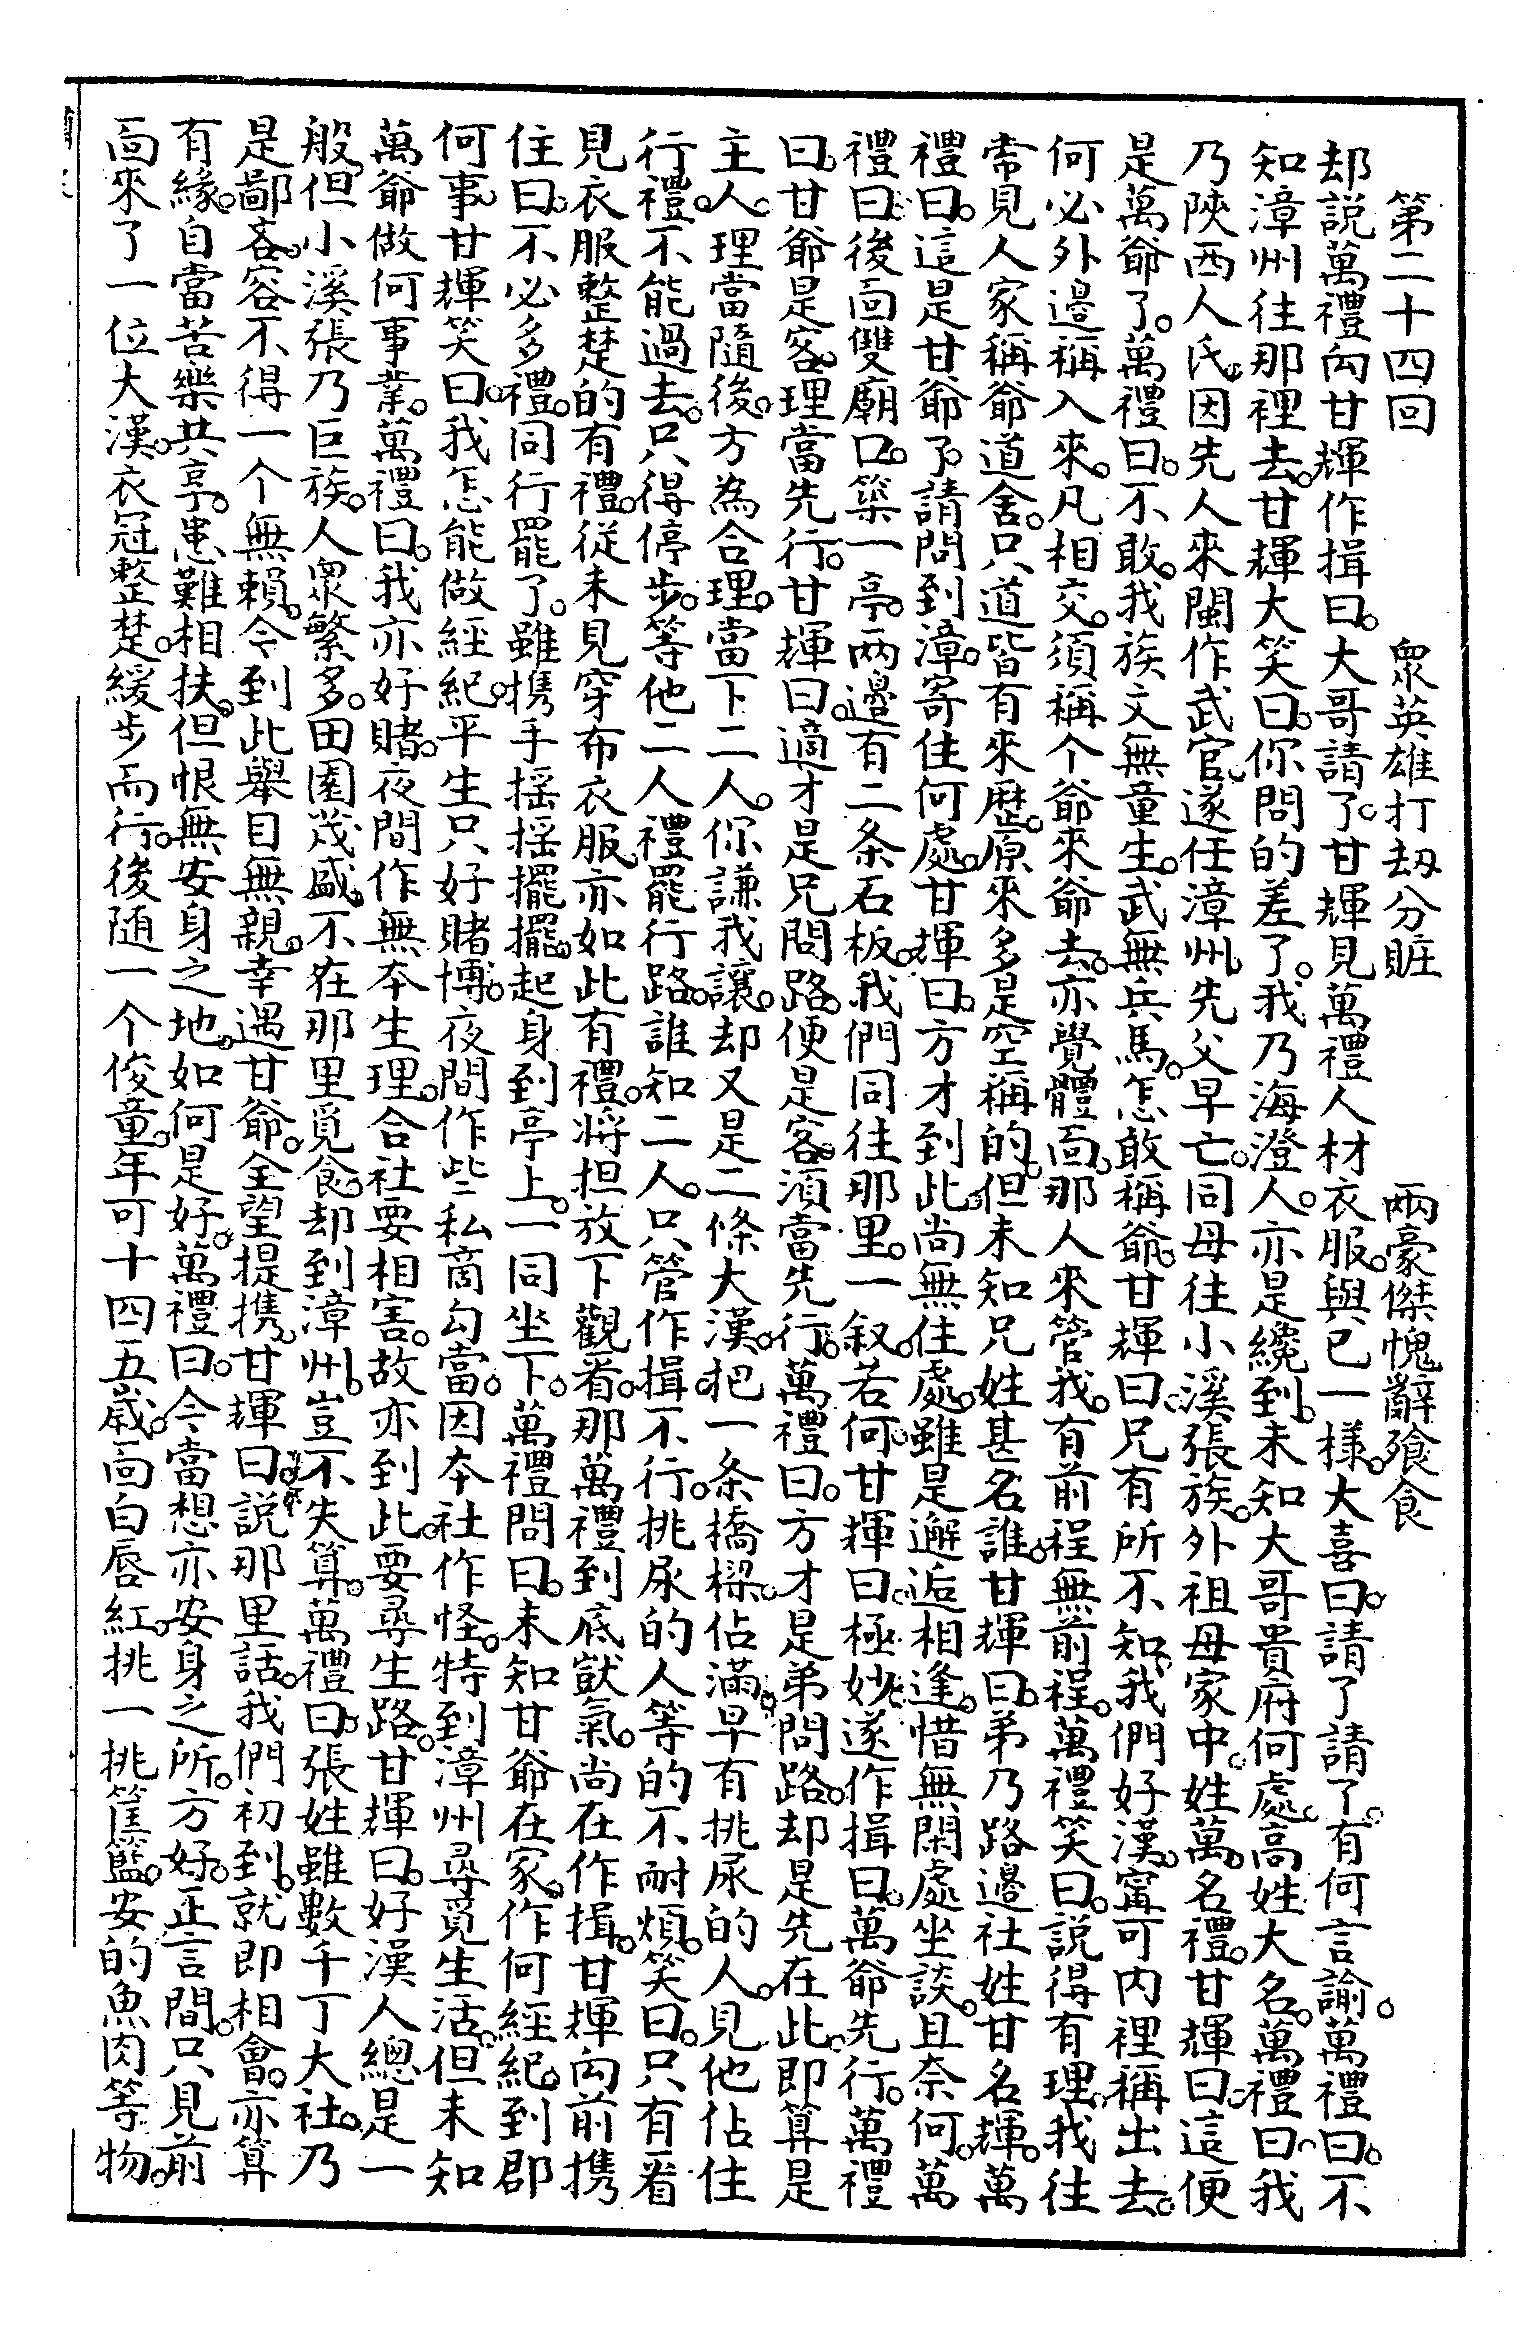 第二十四回　衆英雄打刼分賍　兩豪傑愧辭飱食
却説萬禮向甘輝作揖曰。大哥請了。甘輝見萬禮人材衣服。與已一様。大喜曰。請了請了。有何言諭。萬禮曰。不
知漳州往那裡去。甘輝大笑曰。你問的差了。我乃海澄人。亦是纔到。未知大哥貴府何處。高姓大名。萬禮曰。我
乃陝西人氏。因先人來閩作武官。遂任漳州。先父早亡。同母往小溪張族。外祖母家中。姓萬。名禮。甘輝曰。這便
是萬爺了。萬禮曰。不敢。我族文無童生。武無兵馬。怎敢稱爺。甘輝曰。兄有所不知。我們好漢。寧可内裡稱出去。
何必外邊稱入來。凡相交。須稱个爺來爺去。亦覺體面。那人來管我。有前程無前程。萬禮笑曰。説得有理。我往
常見人家稱爺道舍。只道皆有來歴。原來多是空稱的。但未知兄姓甚名誰。甘輝曰。弟乃路邊社姓甘名輝。萬
禮曰。這是甘爺了。請問到漳。寄住何處。甘揮曰。方才到此。尚無住處。雖是邂逅相逢。惜無閑處坐談。且奈何。萬
禮曰。後面雙廟口。築一亭。两邉有二条石板。我們同往那里。一叙若何。甘揮曰。極妙。遂作揖曰。萬爺先行。萬禮
曰。甘爺是客。理當先行。甘輝曰。適才是兄問路。便是客。湏當先行。萬禮曰。方才是弟問路。却是先在此。即算是
主人。理當隨後。方為合理。當下二人。你謙我讓。却又是二條大漢。把一条撟樑。佔滿。早有挑尿的人。見他佔住
行禮。不能過去。只得停步。等他二人禮罷行路。誰知二人。只管作揖不行。挑尿的人等的不耐煩。笑曰。只有看
見衣服整楚的有禮。従未見穿布衣服。亦如此有禮。将担放下觀看。那萬禮到底獃氣。尚在作揖。甘揮向前携
住曰。不必多禮。同行罷了。雖携手揺揺擺擺。起身到亭上。一同坐下。萬禮問曰。未知甘爺在家。作何經紀。到郡
何事。甘輝笑曰。我怎能做經紀。平生只好賭博。夜間作些私啇勾當。因夲社作怪。特到漳州尋覓生活。但未知
萬爺做何事業。萬禮曰。我亦好賭。夜間作無夲生理。合社要相害。故亦到此。要尋生路。甘揮曰。好漢人總是一
般。但小溪張乃巨族。人衆繁多。田園茂盛。不在那里覓食。却到漳州。豈不失算。萬禮曰。張姓雖數千丁大社。乃
是鄙吝。容不得一个無賴。令到此舉目無親。幸遇甘爺。全望提携。甘輝曰。説那里話。我們初到。就即相會。亦算
有緣。自當苦樂共亭。患難相扶。但恨無安身之地。如何是好。萬禮曰。今當想亦安身之所。方好。正言間。只見前
面來了一位大漢。衣冠整楚。緩步而行。後随一个俊童。年可十四五歲。面白唇紅。挑一挑筐籃。安的魚肉等物。